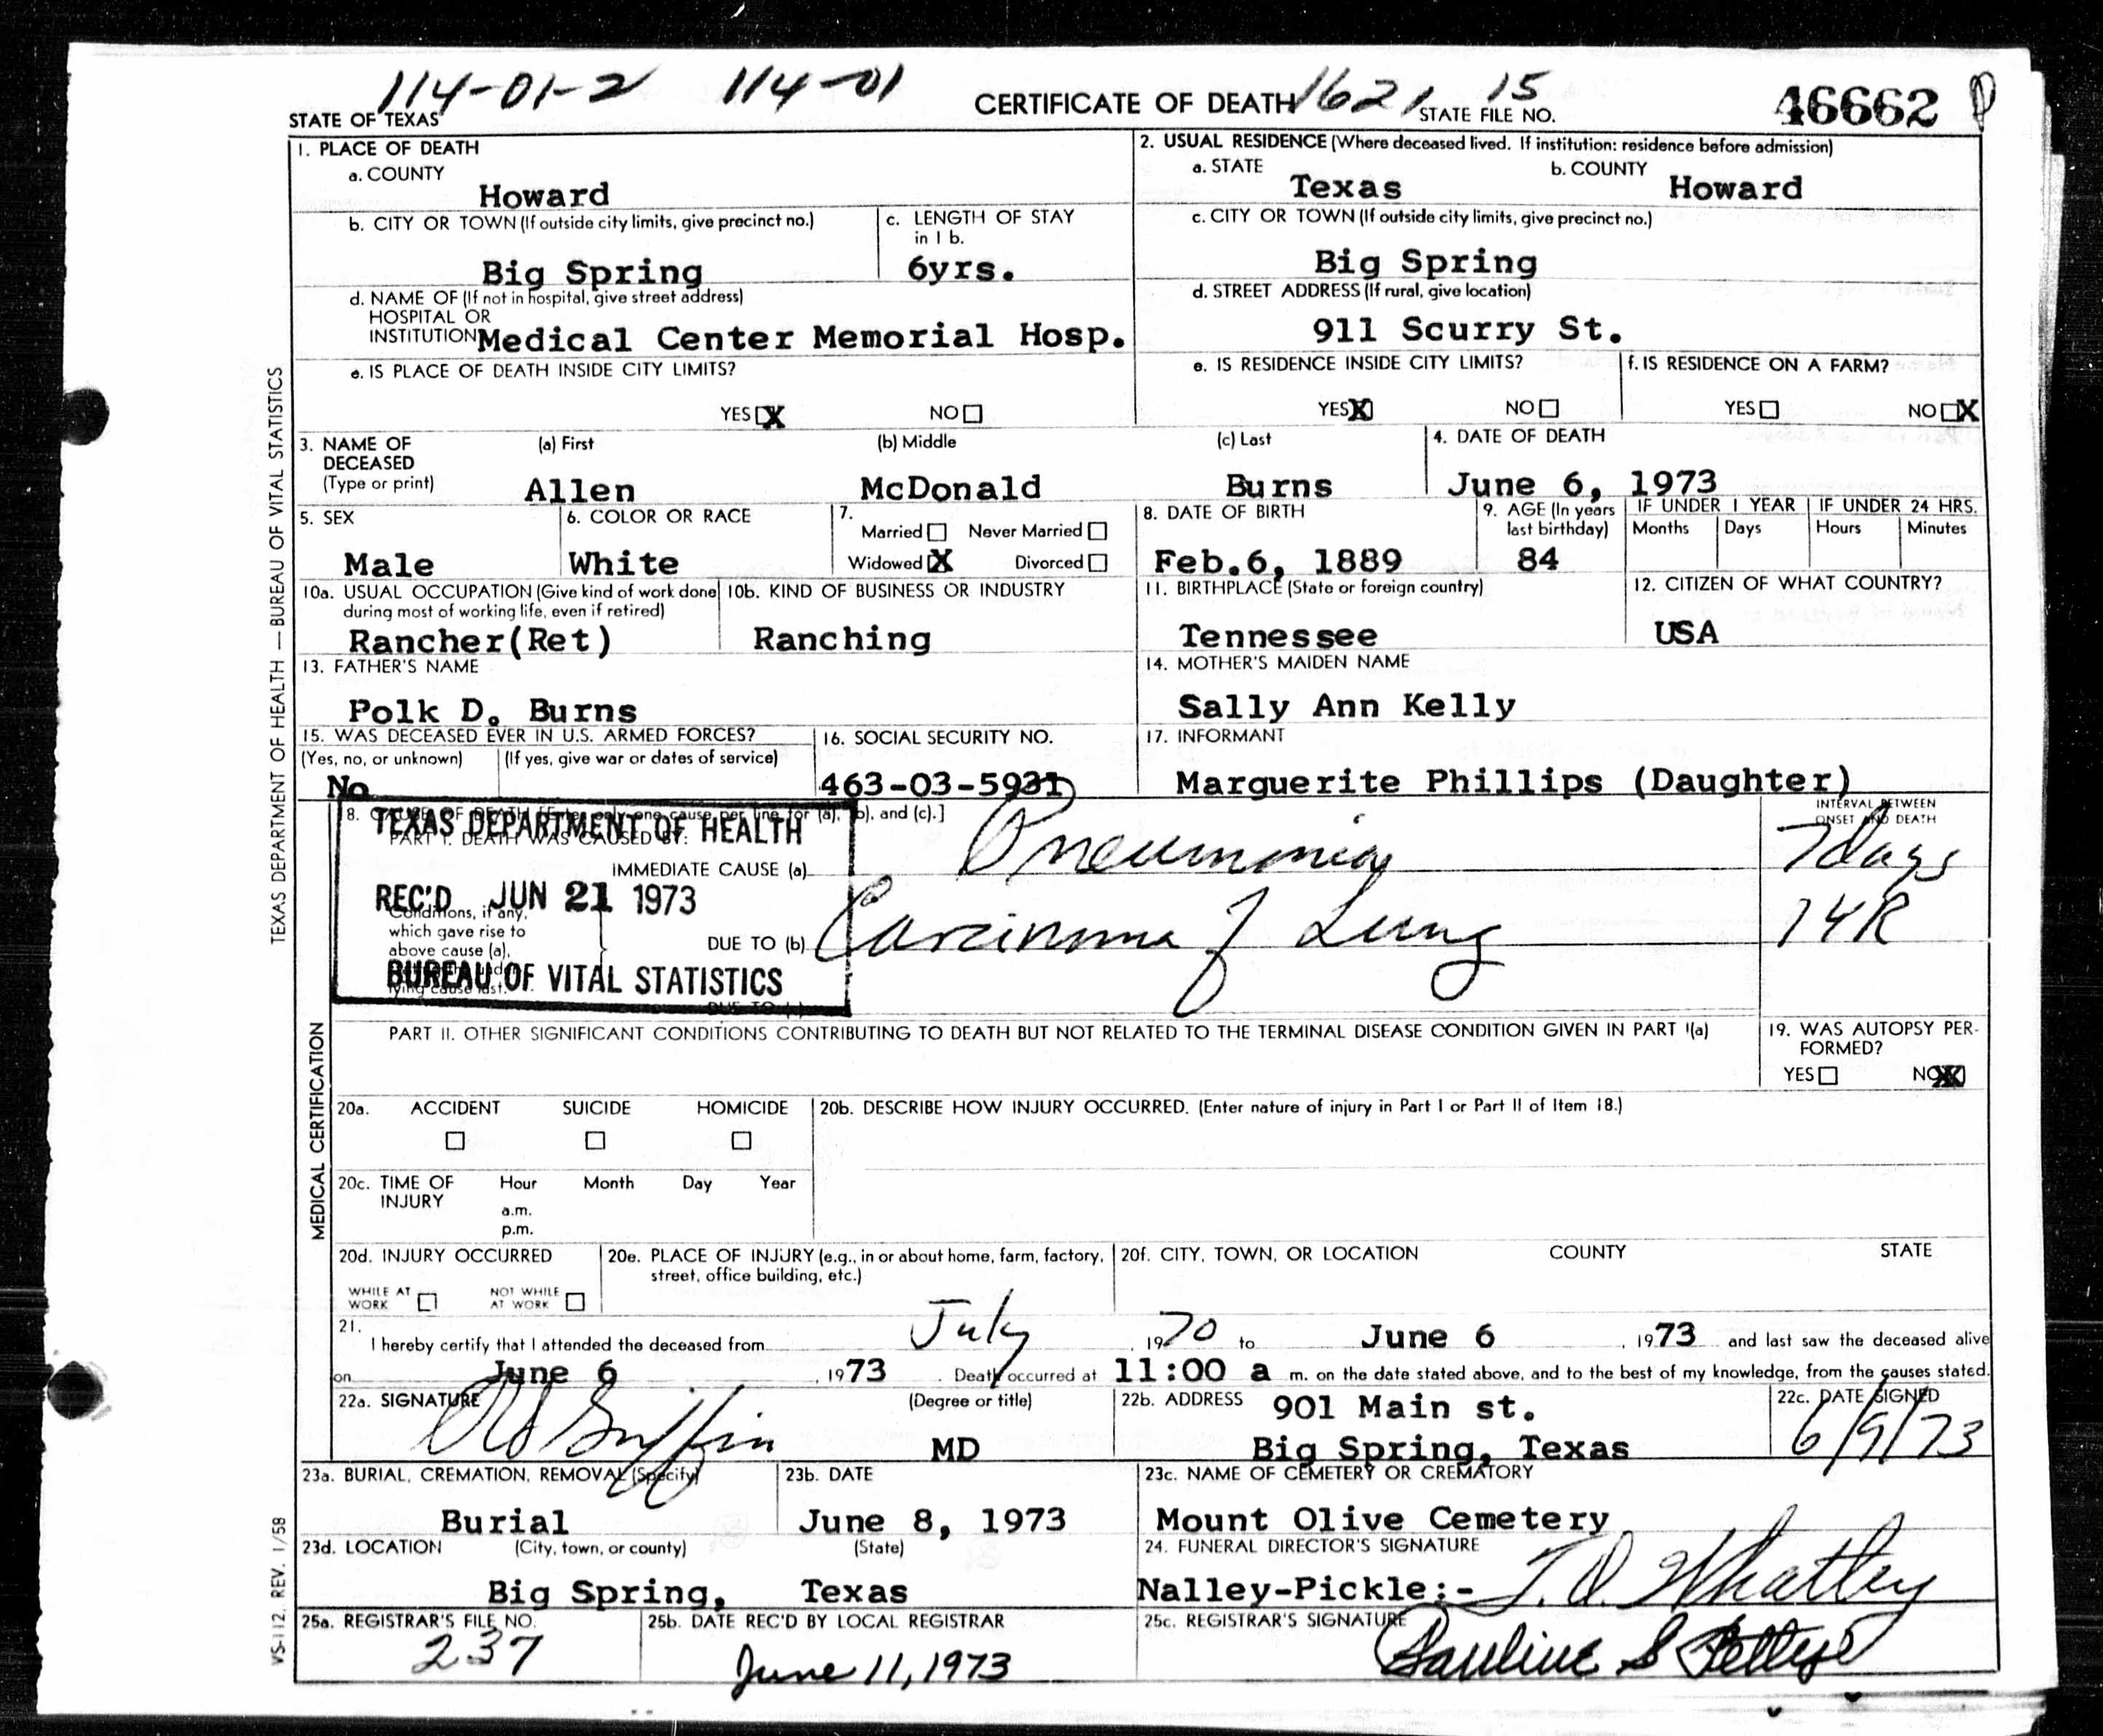 114-01-2 114-01 1621 15
STATE OF TEXAS CERTIFICATE OF DEATH STATE FILE NO. 46662
1. PLACE OF DEATH
a. COUNTY
Howard
2. USUAL RESIDENCE (Where deceased lived. If institution: residence before admission)
a. STATE b. COUNTY
Texas Howard
b. CITY OR TOWN (If outside city limits, give precinct no.) c. LENGTH OF STAY
in 1 b.
Big Spring 6yrs.
c. CITY OR TOWN (If outside city limits, give precinct no.)
Big Spring
d. NAME OF (If not in hospital, give street address)
HOSPITAL OR
INSTITUTION Medical Center Memorial Hosp.
d. STREET ADDRESS (If rural, give location)
911 Scurry St.
e. IS PLACE OF DEATH INSIDE CITY LIMITS?
YES X NO
e. IS RESIDENCE INSIDE CITY LIMITS? f. IS RESIDENCE ON A FARM?
YES X NO YES NO X
3. NAME OF (a) First (b) Middle (c) Last 4. DATE OF DEATH
DECEASED
(Type or print) Allen McDonald Burns June 6, 1973
5. SEX 6. COLOR OR RACE 7. Married Never Married
Male White Widowed X Divorced
8. DATE OF BIRTH 9. AGE (In years last birthday) IF UNDER 1 YEAR IF UNDER 24 HRS.
Months Days Hours Minutes
Feb.6, 1889 84
10a. USUAL OCCUPATION (Give kind of work done 10b. KIND OF BUSINESS OR INDUSTRY
during most of working life, even if retired)
Rancher(Ret) Ranching
11. BIRTHPLACE (State or foreign country) 12. CITIZEN OF WHAT COUNTRY?
Tennessee USA
13. FATHER'S NAME 14. MOTHER'S MAIDEN NAME
Polk D. Burns Sally Ann Kelly
15. WAS DECEASED EVER IN U.S. ARMED FORCES? 16. SOCIAL SECURITY NO. 17. INFORMANT
(Yes, no, or unknown) (If yes, give war or dates of service)
No 463-03-5931 Marguerite Phillips (Daughter)
18. CAUSE OF DEATH [Enter only one cause per line for (a), (b), and (c).] INTERVAL BETWEEN
ONSET AND DEATH
TEXAS DEPARTMENT OF HEALTH
PART I. DEATH WAS CAUSED BY:
IMMEDIATE CAUSE (a) Pneumonia 7 days
REC'D JUN 21 1973
Conditions, if any,
which gave rise to
above cause (a),
DUE TO (b) Carcinoma of Lung 1 YR
BUREAU OF VITAL STATISTICS
lying cause last.
DUE TO (c)
PART II. OTHER SIGNIFICANT CONDITIONS CONTRIBUTING TO DEATH BUT NOT RELATED TO THE TERMINAL DISEASE CONDITION GIVEN IN PART I(a)
19. WAS AUTOPSY PER-
FORMED?
YES NO X
20a. ACCIDENT SUICIDE HOMICIDE 20b. DESCRIBE HOW INJURY OCCURRED. (Enter nature of injury in Part I or Part II of Item 18.)
20c. TIME OF Hour Month Day Year
INJURY a.m.
p.m.
20d. INJURY OCCURRED 20e. PLACE OF INJURY (e.g., in or about home, farm, factory, 20f. CITY, TOWN, OR LOCATION COUNTY STATE
street, office building, etc.)
WHILE AT NOT WHILE
WORK AT WORK
21.
I hereby certify that I attended the deceased from July , 1970 to June 6 , 1973 and last saw the deceased alive
on June 6 , 1973 . Death occurred at 11:00 a m. on the date stated above, and to the best of my knowledge, from the causes stated.
22a. SIGNATURE (Degree or title) 22b. ADDRESS 901 Main st. 22c. DATE SIGNED
Griffin MD Big Spring, Texas 6/9/73
23a. BURIAL, CREMATION, REMOVAL (Specify) 23b. DATE 23c. NAME OF CEMETERY OR CREMATORY
Burial June 8, 1973 Mount Olive Cemetery
23d. LOCATION (City, town, or county) (State) 24. FUNERAL DIRECTOR'S SIGNATURE
Big Spring, Texas Nalley-Pickle:- Whatley
25a. REGISTRAR'S FILE NO. 25b. DATE REC'D BY LOCAL REGISTRAR 25c. REGISTRAR'S SIGNATURE
237 June 11, 1973 Pauline S
TEXAS DEPARTMENT OF HEALTH — BUREAU OF VITAL STATISTICS
MEDICAL CERTIFICATION
VS-112, REV. 1/58